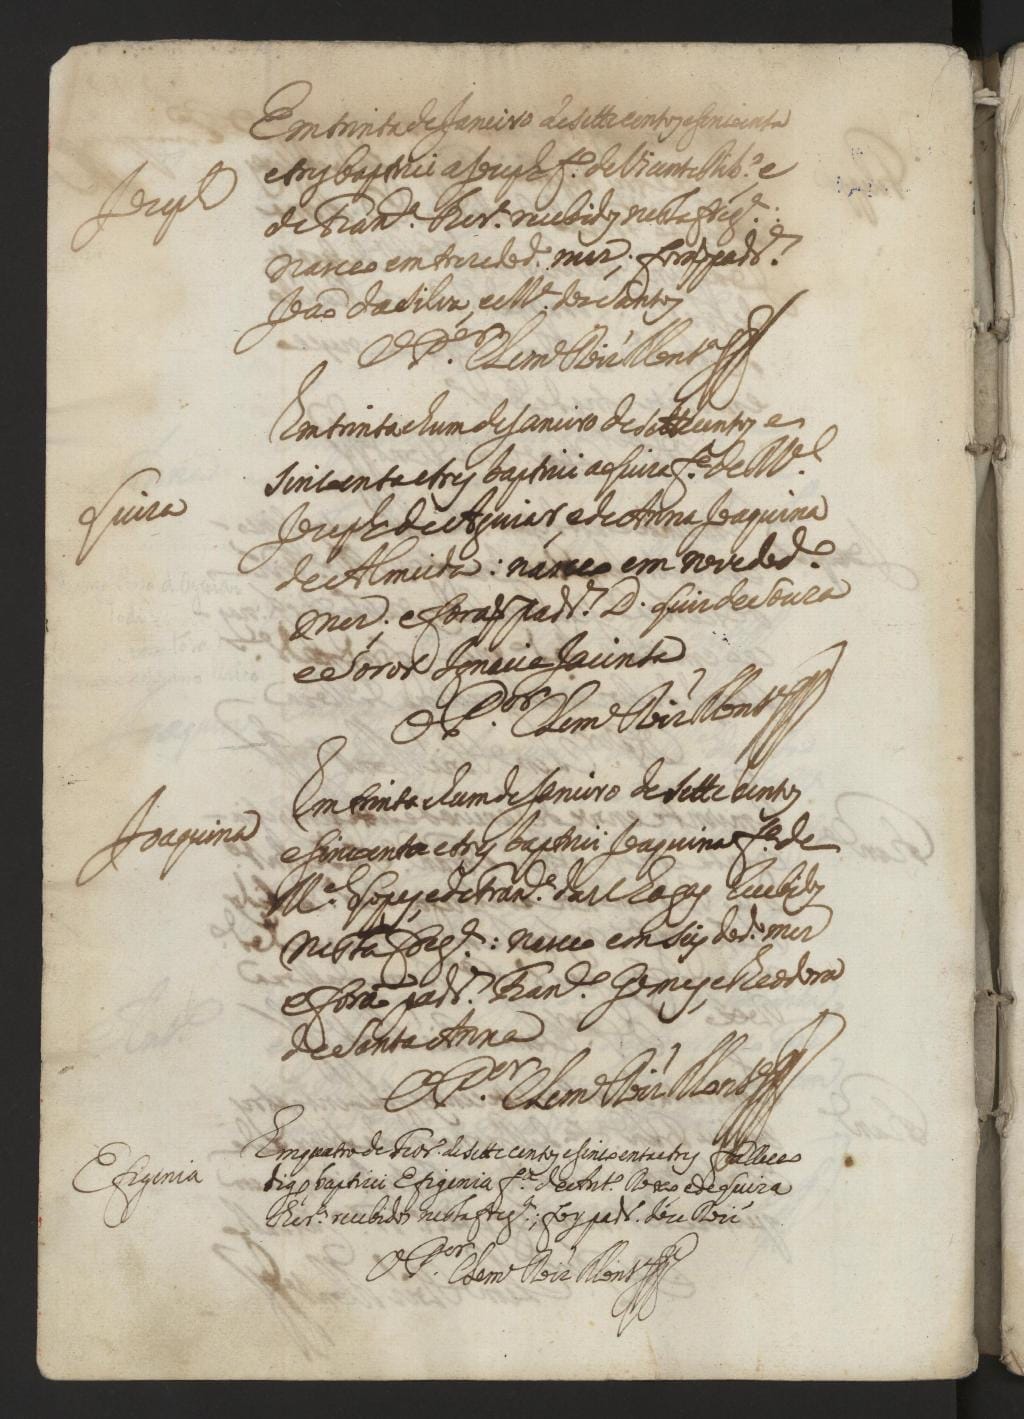 Em trinta de Janeiro de sette centos e sincoenta
Joseph
e tres baptizei a Joseph f.º de Vicente Rib.º e
de Fran.ca recebidos nesta freg.ª:
nasceo em treze do d.º mez, forão padr.os
João da Silva, e M.ª dos Santos
O P.or Clem.e Roiz Mont.ro
Em trinta e hum de Janeiro de sette centos e
sincoenta e tres baptizei a Luiza f.ª de M.el
Luiza
Joseph de Aguiar, e de Anna Joaquina
de Almeida: nasceo em nove do d.º
mez, e forão padr.os D. Luis de Souza
e Soror Ignacia Jacinta
O P.or Clem.e Roiz Mont.ro
Em trinta e hum de Janeiro de sette centos
Joaquina
e sincoenta e tres baptizei Joaquina f.ª de
M.el Lopes, e de Fran.ca das Chagas recebidos
nesta freg.ª: nasceo em seis do d.º mez
e forão padr.os Fran.co Gomes, e Theodora
de Santa Anna
O P.or Clem.e Roiz Mont.ro
Em quatro de Fevr.º de sette centos e sincoenta e tres falleceo
Efigenia
digo baptizei Efigenia f.ª de Ant.º e de Luiza
recebidos nesta freg.ª; foy padr.º José Roiz
O P.or Clem.e Roiz Mont.ro